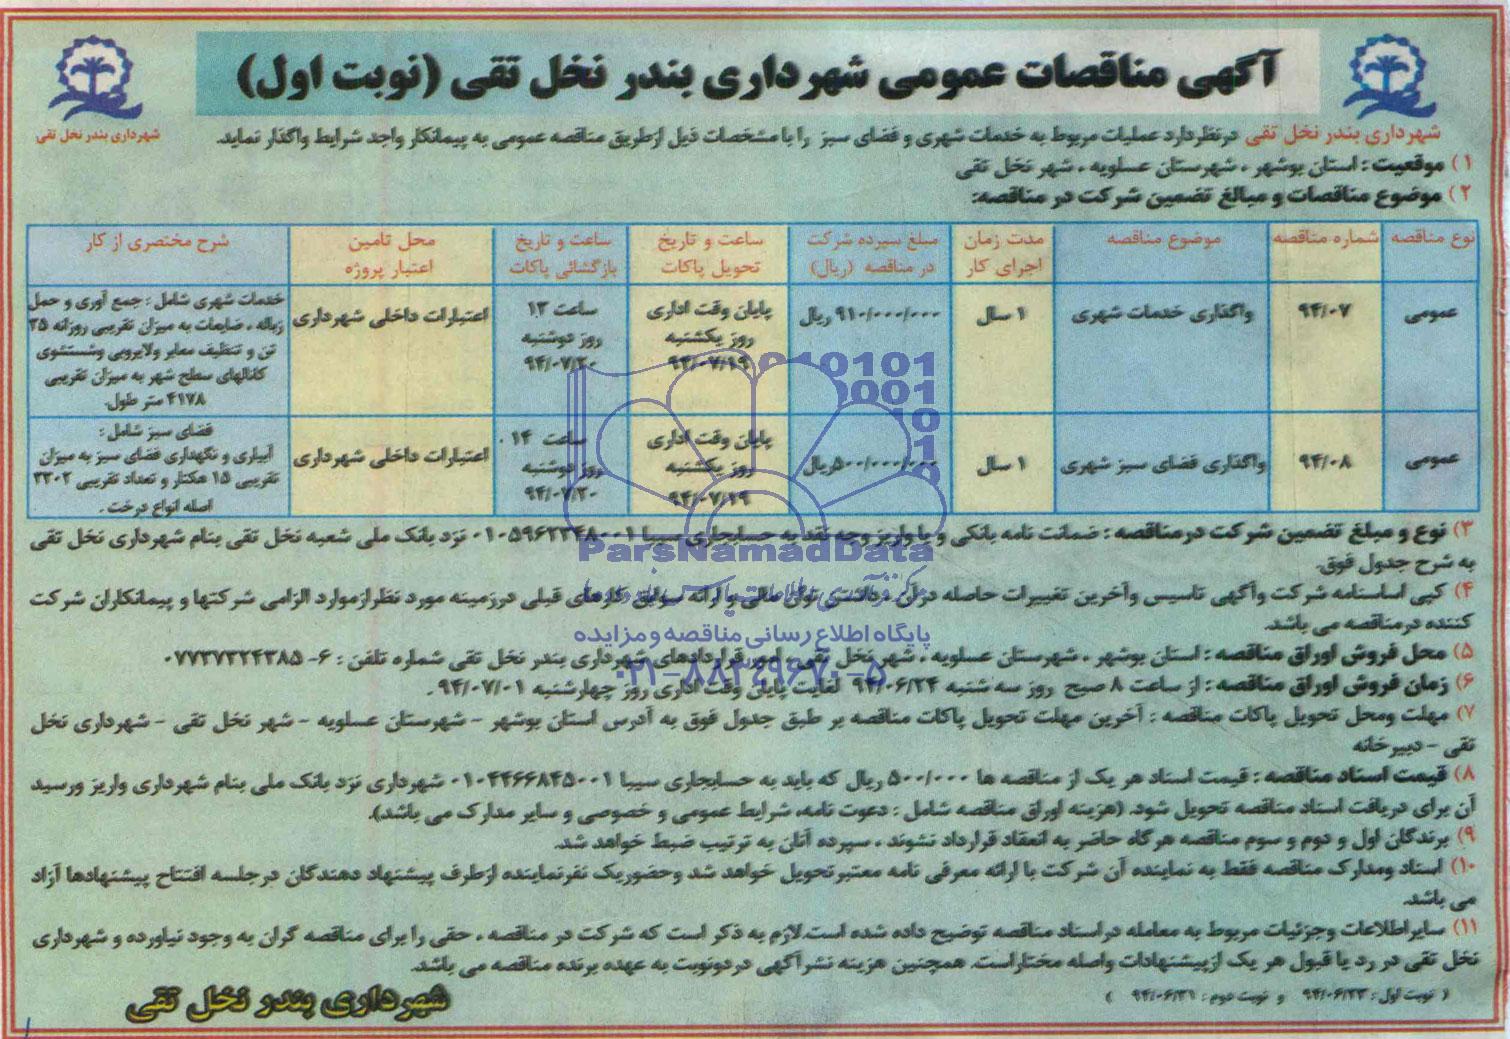 آگهی مناقصات عمومی شهرداری بندر نخل تقی (نوبت اول)
شهرداری بندر نخل تقی
شهرداری بندر نخل تقی درنظردارد عملیات مربوط به خدمات شهری و فضای سبز را با مشخصات ذیل ازطریق مناقصه عمومی به پیمانکار واجد شرایط واگذار نماید.
۱) موقعیت : استان بوشهر ، شهرستان عسلویه ، شهر نخل تقی
۲) موضوع مناقصات و مبالغ تضمین شرکت در مناقصه:
نوع مناقصه شماره مناقصه موضوع مناقصه مدت زمان اجرای کار مبلغ سپرده شرکت در مناقصه (ریال) ساعت و تاریخ تحویل پاکات ساعت و تاریخ بازگشائی پاکات محل تامین اعتبار پروژه شرح مختصری از کار
عمومی ۹۴/۰۷ واگذاری خدمات شهری ۱ سال ۹۱۰/۰۰۰/۰۰۰ ریال پایان وقت اداری روز یکشنبه ۹۴/۰۷/۱۹ ساعت ۱۳ روز دوشنبه ۹۴/۰۷/۲۰ اعتبارات داخلی شهرداری
خدمات شهری شامل : جمع آوری و حمل
زباله ، ضایعات به میزان تقریبی روزانه ۳۵
تن و تنظیف معابر ولایروبی وشستشوی
کانالهای سطح شهر به میزان تقریبی
۴۱۷۸ متر طول.
عمومی ۹۴/۰۸ واگذاری فضای سبز شهری ۱ سال ۵۰۰/۰۰۰/۰۰۰ ریال پایان وقت اداری روز یکشنبه ۹۴/۰۷/۱۹ ساعت ۱۴ روز دوشنبه ۹۴/۰۷/۲۰ اعتبارات داخلی شهرداری
فضای سبز شامل :
آبیاری و نگهداری فضای سبز به میزان
تقریبی ۱۵ هکتار و تعداد تقریبی ۳۳۰۲
اصله انواع درخت .
۳) نوع و مبلغ تضمین شرکت درمناقصه : ضمانت نامه بانکی و یا واریز وجه نقد به حسابجاری سیبا ۰۱۰۵۹۶۲۳۴۸۰۰۱ نزد بانک ملی شعبه نخل تقی بنام شهرداری نخل تقی
به شرح جدول فوق.
۴) کپی اساسنامه شرکت وآگهی تاسیس وآخرین تغییرات حاصله درآن ، داشتن توان مالی و ارائه سوابق کارهای قبلی درزمینه مورد نظرازموارد الزامی شرکتها و پیمانکاران شرکت
کننده درمناقصه می باشد.
۵) محل فروش اوراق مناقصه : استان بوشهر ، شهرستان عسلویه ، شهر نخل تقی ، امور قراردادهای شهرداری بندر نخل تقی شماره تلفن : ۶- ۰۷۷۳۷۳۲۴۳۸۵
۶) زمان فروش اوراق مناقصه : از ساعت ۸ صبح روز سه شنبه ۹۴/۰۶/۲۴ لغایت پایان وقت اداری روز چهارشنبه ۹۴/۰۷/۰۱ .
۷) مهلت ومحل تحویل پاکات مناقصه : آخرین مهلت تحویل پاکات مناقصه بر طبق جدول فوق به آدرس استان بوشهر - شهرستان عسلویه - شهر نخل تقی - شهرداری نخل
تقی - دبیرخانه
۸) قیمت اسناد مناقصه : قیمت اسناد هر یک از مناقصه ها ۵۰۰/۰۰۰ ریال که باید به حسابجاری سیبا ۰۱۰۴۴۶۶۸۴۵۰۰۱ شهرداری نزد بانک ملی بنام شهرداری واریز ورسید
آن برای دریافت اسناد مناقصه تحویل شود. (هزینه اوراق مناقصه شامل : دعوت نامه، شرایط عمومی و خصوصی و سایر مدارک می باشد).
۹) برندگان اول و دوم و سوم مناقصه هرگاه حاضر به انعقاد قرارداد نشوند ، سپرده آنان به ترتیب ضبط خواهد شد.
۱۰) اسناد ومدارک مناقصه فقط به نماینده آن شرکت با ارائه معرفی نامه معتبرتحویل خواهد شد وحضوریک نفرنماینده ازطرف پیشنهاد دهندگان درجلسه افتتاح پیشنهادها آزاد
می باشد.
۱۱) سایراطلاعات وجزئیات مربوط به معامله دراسناد مناقصه توضیح داده شده است.لازم به ذکر است که شرکت در مناقصه ، حقی را برای مناقصه گران به وجود نیاورده و شهرداری
نخل تقی در رد یا قبول هر یک ازپیشنهادات واصله مختاراست. همچنین هزینه نشرآگهی دردونوبت به عهده برنده مناقصه می باشد.
( نوبت اول : ۹۴/۰۶/۲۳ و نوبت دوم : ۹۴/۰۶/۳۱ )
شهرداری بندر نخل تقی
ParsNamadData
پایگاه اطلاع رسانی مناقصه و مزایده
۰۲۱-۸۸۳۴۹۶۷۰-۵